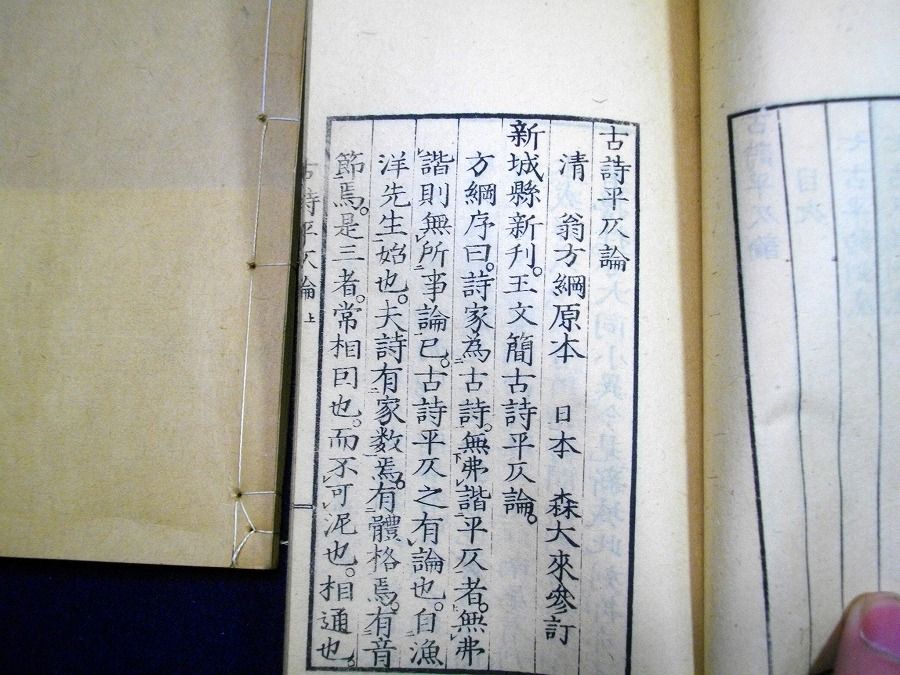 古詩平仄論
清 翁方綱原本 日本 森大來參訂
新城縣新刊。王文簡古詩平仄論。
方綱序曰。詩家為古詩。無弗諧平仄者。無弗
諧則無所事論已。古詩平仄之有論也。自漁
洋先生始也。夫詩有家數焉。有體格焉。有音
節焉。是三者。常相因也。而不可泥也。相通也。
古詩平仄論 上
古詩平仄論
目次